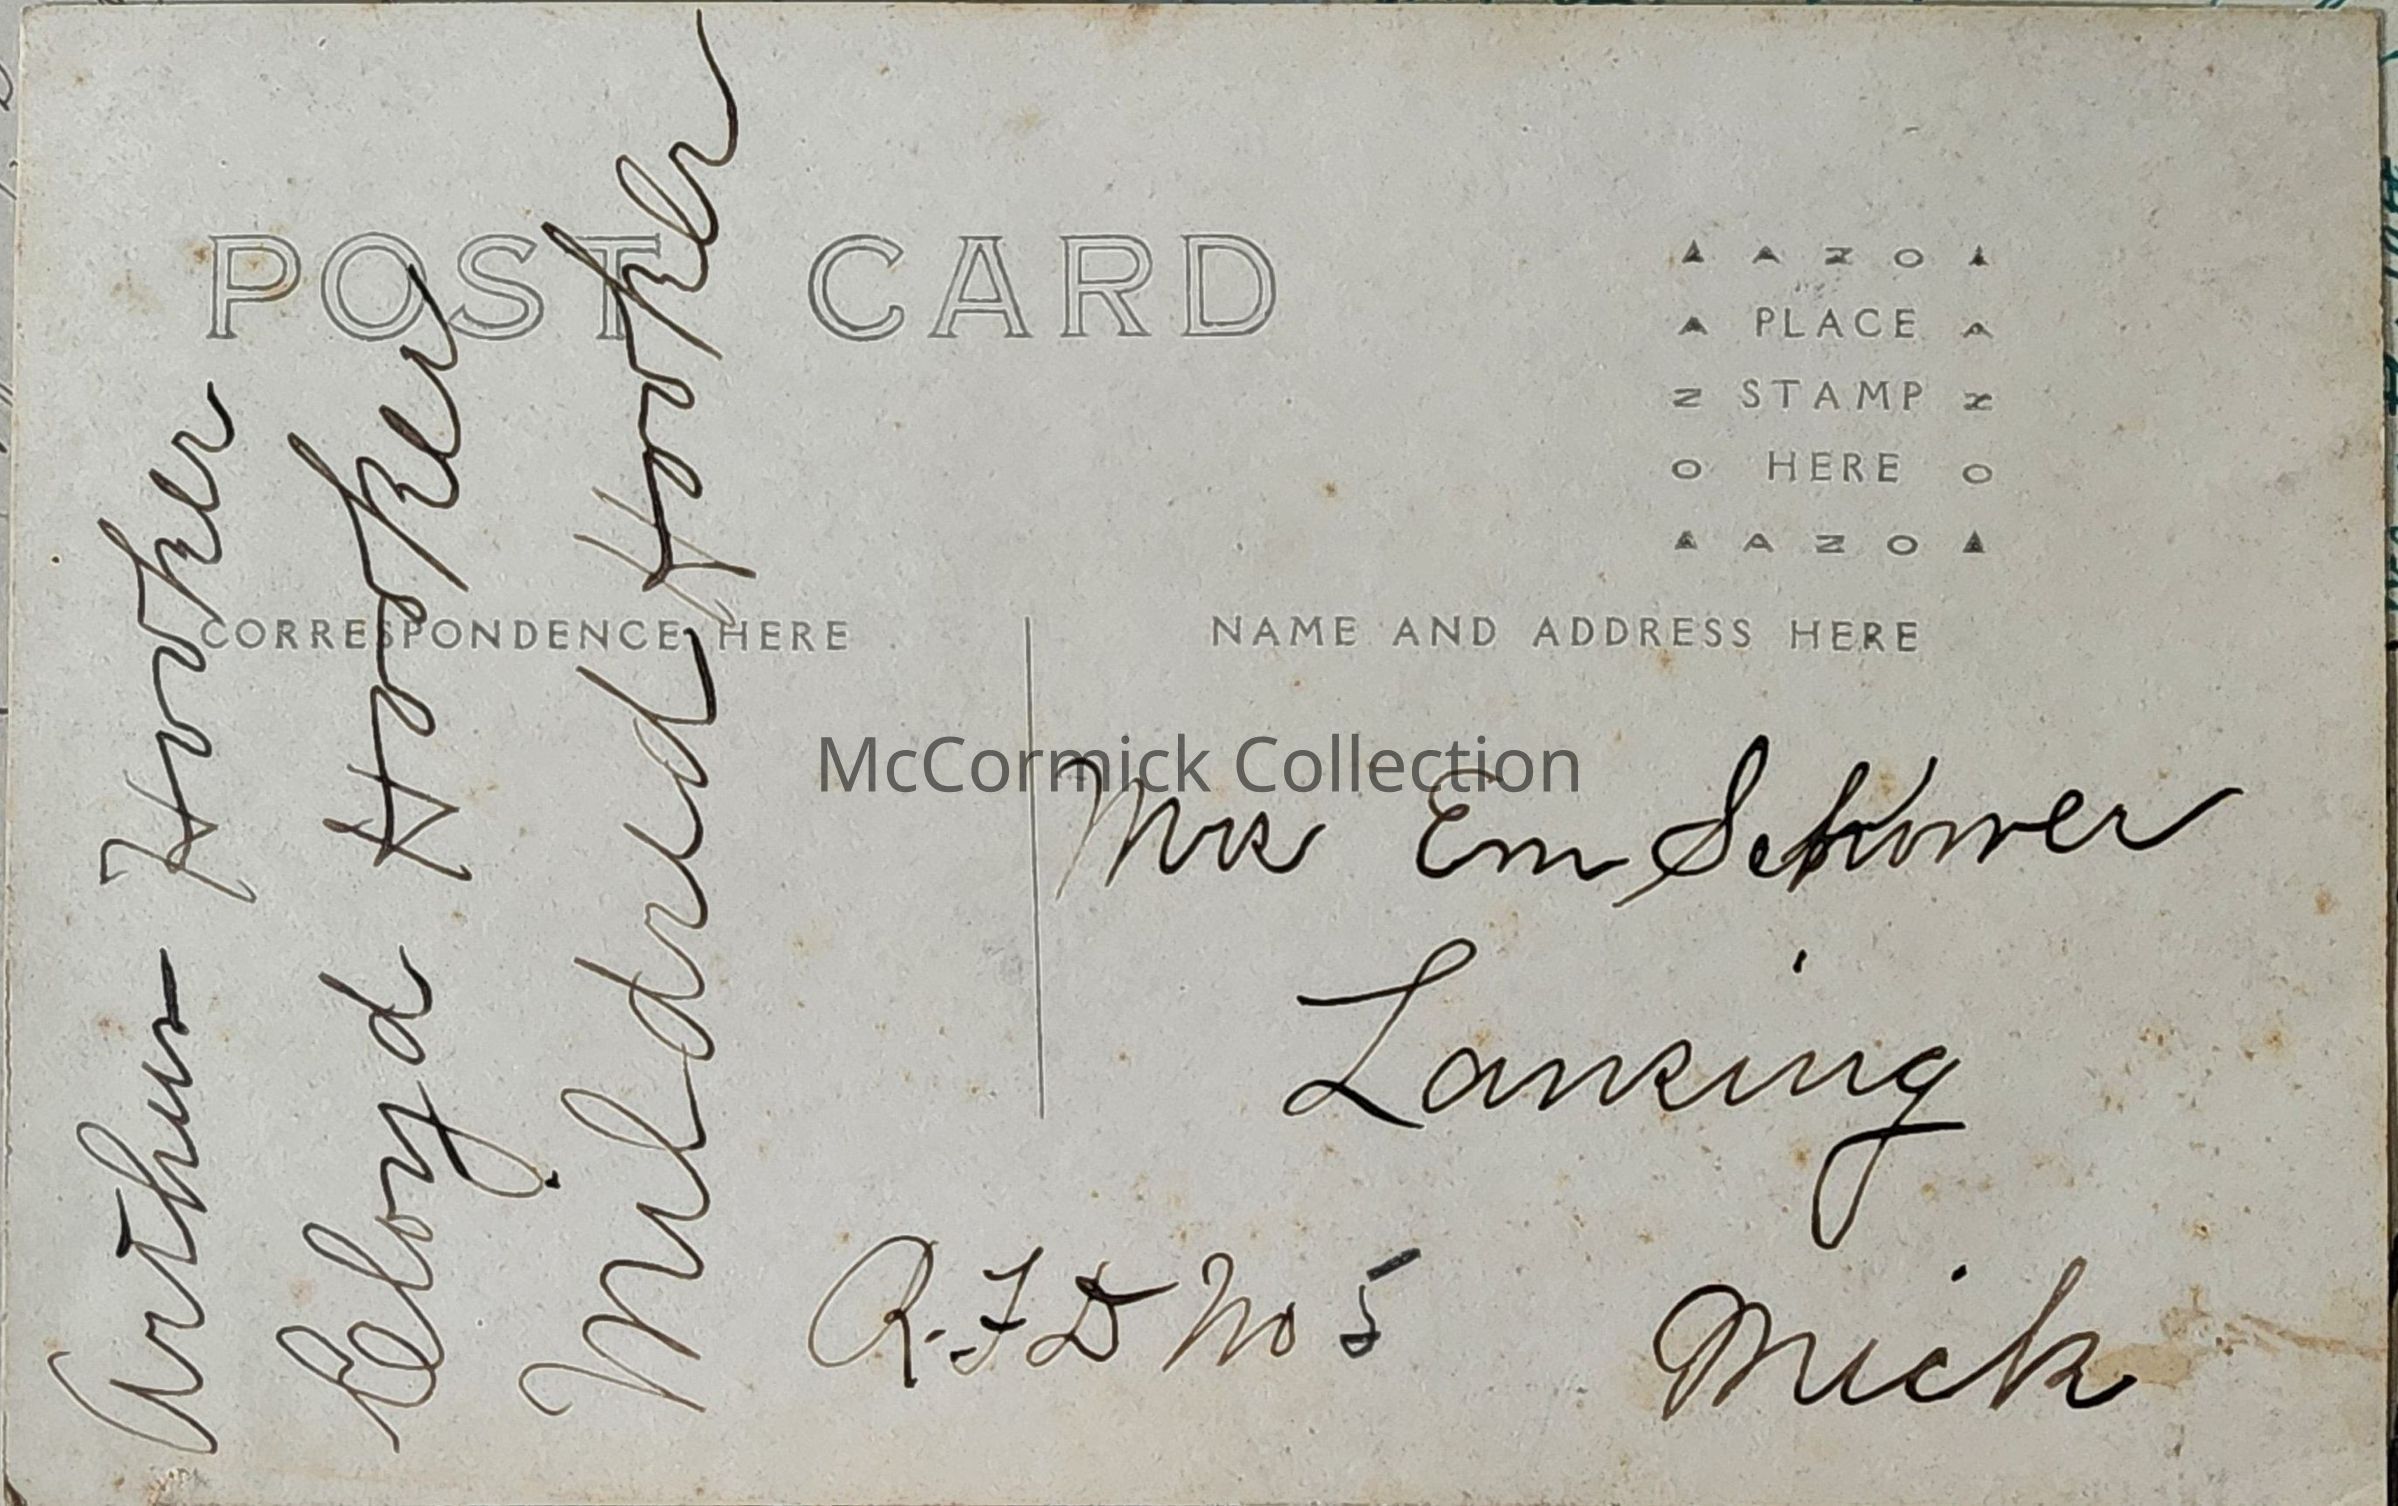 POST CARD
AZO
A PLACE A
Z STAMP Z
O HERE O
AZO
CORRESPONDENCE HERE
NAME AND ADDRESS HERE
Arthur Hooker
Cloyd Hooker
Mildred Hooker
McCormick Collection
Mrs Em
Lansing
R.F D No 5
Mich